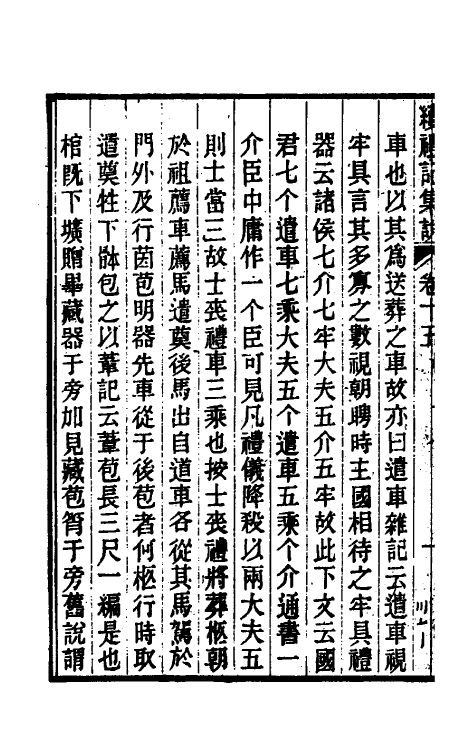 續禮記集說 卷十五
車也以其爲送葬之車故亦曰遣車雜記云遣車視
牢具言其多寡之數視朝聘時主國相待之牢具禮
器云諸侯七介七牢大夫五介五牢故此下文云國
君七个遣車七乘大夫五个遣車五乘个介通書一
介臣中庸作一个臣可見凡禮儀降殺以兩大夫五
則士當三故士喪禮車三乘也按士喪禮將葬柩朝
於祖薦車薦馬遣奠後馬出自道車各從其馬駕於
門外及行茵苞明器先車從于後苞者何柩行時取
遣奠牲下體包之以葦記云葦苞長三尺一編是也
棺既下壙贈畢藏器于旁加見藏苞筲于旁舊說謂